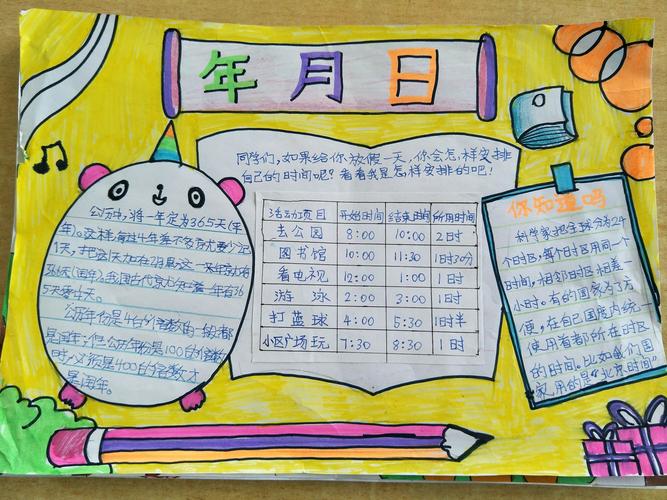 年月日
同学们,如果给你放假一天,你会怎样安排
自己的时间呢?看看我是怎样安排的吧!
活动项目 开始时间 结束时间 所用时间
去公园 8:00 10:00 2时
图书馆 10:00 11:30 1时30分
看电视 12:00 1:00 1时
游泳 2:00 3:00 1时
打蓝球 4:00 5:30 1时半
小区广场玩 7:30 8:30 1时
公历中,将一年定为365天(平
年)。这样每过4年差不多就要少记
1天,把这天加在2月里,这一年就有
366天(闰年)。我国古代就知道一年有36
5天零4天。
公历年份是4的倍数的一般都
是闰年;但公历年份是100的倍数
时,必须是400的倍数才
是闰年。
你知道吗
科学家把全球分为24
个时区,每个时区用同一个
时间,相邻时区相差
小时。有的国家为了方
便,在自己国度内统一
使用首都所在时区
的时间。比如我们国
家用的是“北京时间”